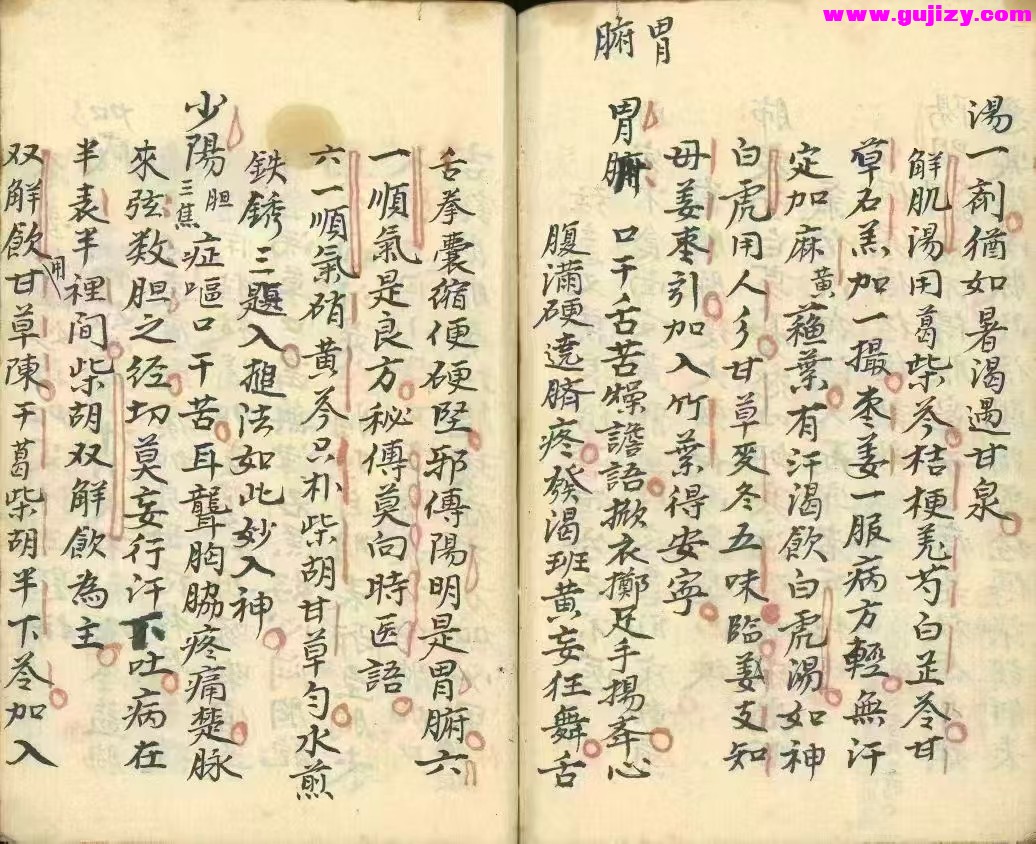 www.gujizy.com
胃腑
湯一剤猶如暑渴遇甘泉
解肌湯用葛柴芩桔梗羌芍白芷苓甘
草石羔加一撮枣姜一服病方輕無汗
定加麻黄蘓葉有汗渴飲白虎湯如神
白虎用人參甘草麥冬五味臨姜支知
毋姜枣引加入竹葉得安寧
胃腑 口干舌苦燥譫語掀衣擲足手揚弄心
腹满硬遶臍疼發渴班黄妄狂舞舌
舌拳囊缩便硬坚邪傳陽明是胃腑六
一順氣是良方秘傳莫向時医語
六一順氣硝黄芩只朴柴胡甘草勻水煎
鉄銹三題入搥法如此妙入神
少陽胆三焦症嘔口干苦耳聾胸脇疼痛楚脉
來弦数胆之经切莫妄行汗下吐病在
半表半裡間柴胡双解飲為主
双解飲用甘草陳干葛柴胡半下芩加入